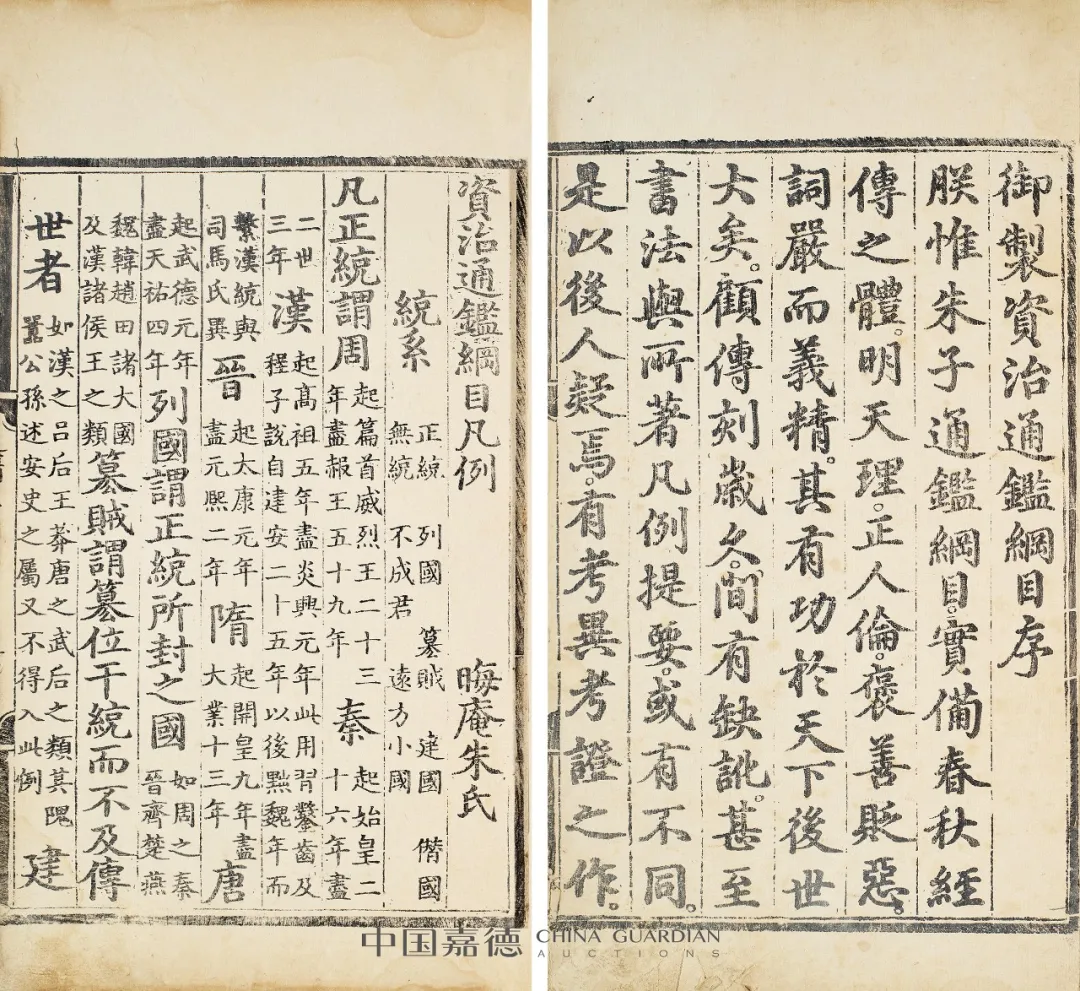 御製資治通鑑綱目序
朕惟朱子通鑑綱目。實備春秋經
傳之體。明天理。正人倫。褒善貶惡。
詞嚴而義精。其有功於天下後世
大矣。顧傳刻歲久。間有缺訛。甚至
書法與所著凡例提要。或有不同。
是以後人疑焉。有考異考證之作。
資治通鑑綱目凡例 晦庵朱氏
統系 正統 列國 篡賊 建國 僭國 無統 不成君 遠方小國
凡正統謂周 起篇首威烈王二十三年盡赧王五十九年 秦 起始皇二十六年盡
二世三年 漢 起高祖五年盡炎興元年此用習鑿齒及程子說自建安二十五年以後黜魏年而
繫漢統與司馬氏異 晉 起大康元年盡元熙二年 隋 起開皇九年盡大業十三年 唐
起武德元年盡天祐四年 列國謂正統所封之國 如周之秦晉齊楚燕
魏韓趙田諸大國及漢諸侯王之類 篡賊謂篡位干統而不及傳
世者 如漢之呂后王莽唐之武后之類其隗囂公孫述安史之屬又不得入此例 建
中国嘉德 CHINA GUARDIAN
AUCTIONS